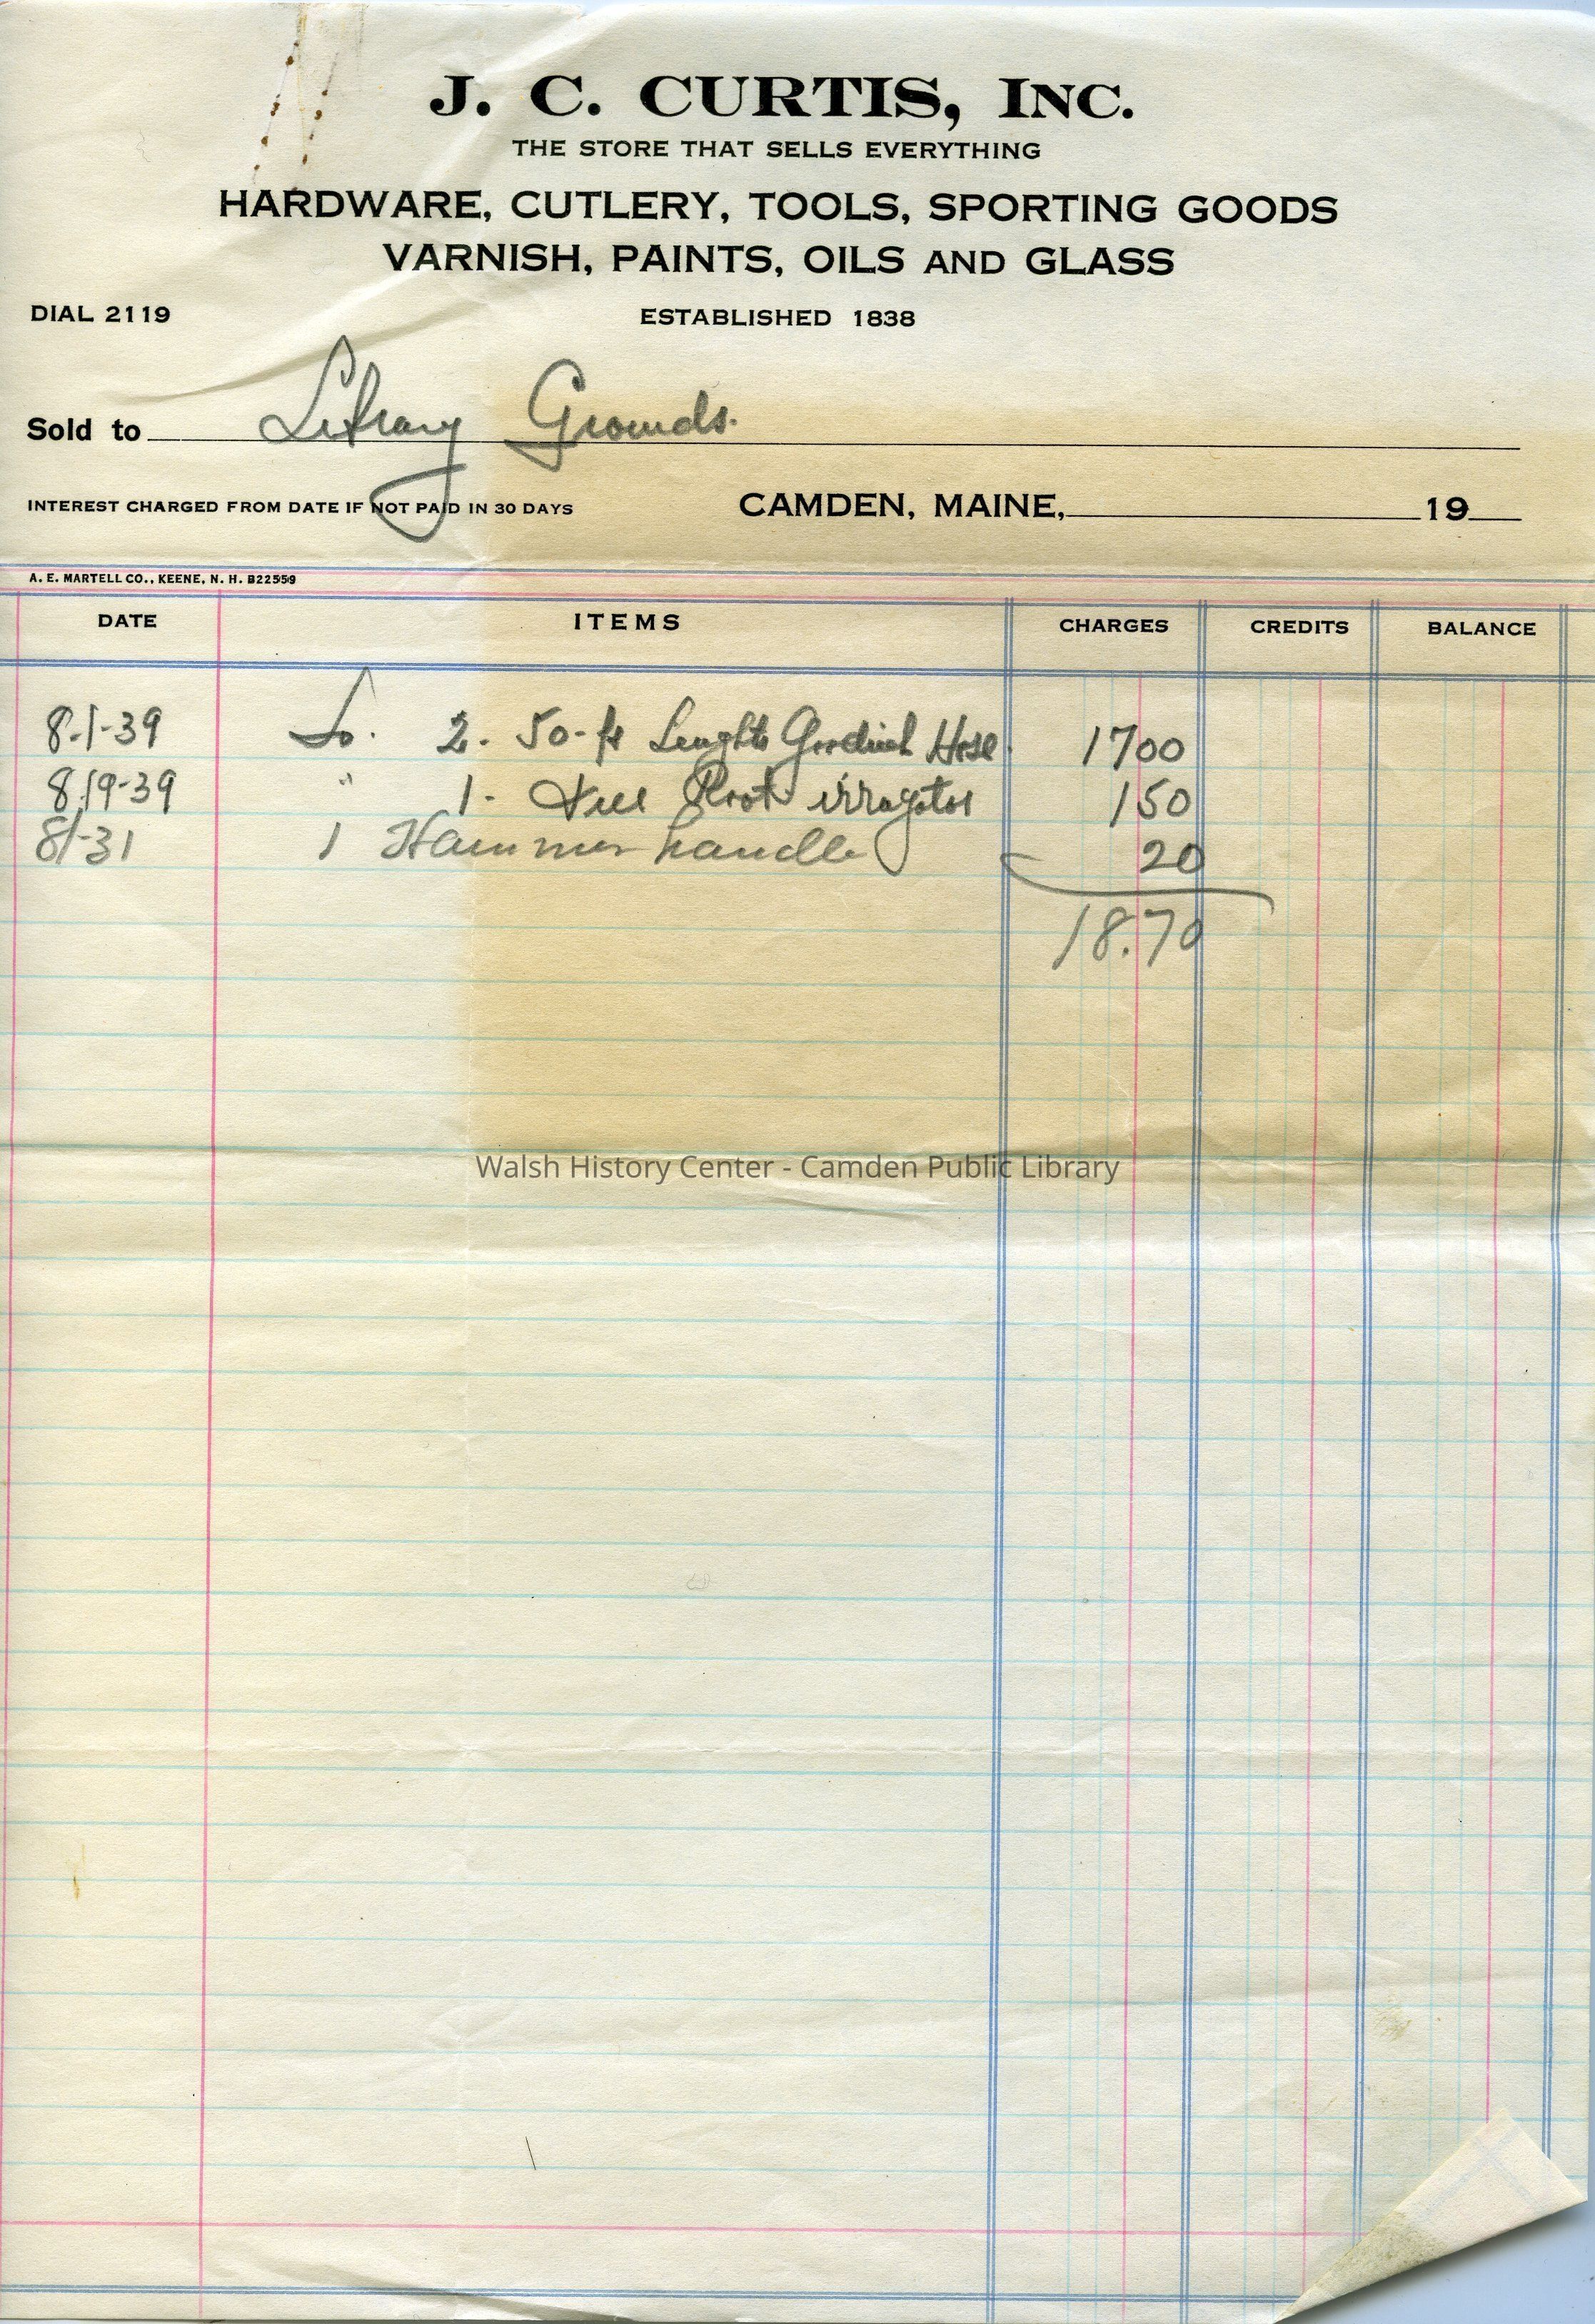 J. C. CURTIS, INC.
THE STORE THAT SELLS EVERYTHING
HARDWARE, CUTLERY, TOOLS, SPORTING GOODS
VARNISH, PAINTS, OILS AND GLASS
DIAL 2119 ESTABLISHED 1838
Sold to Library Grounds.
INTEREST CHARGED FROM DATE IF NOT PAID IN 30 DAYS CAMDEN, MAINE, 19
A. E. MARTELL CO., KEENE, N. H. B22559
DATE ITEMS CHARGES CREDITS BALANCE
8-1-39 To. 2. 50-ft Lenghts Goodrich Hose 1700
8.19-39 " 1- Tree Root irragator 150
8/-31 1 Hammer handle 20
18.70
Walsh History Center - Camden Public Library